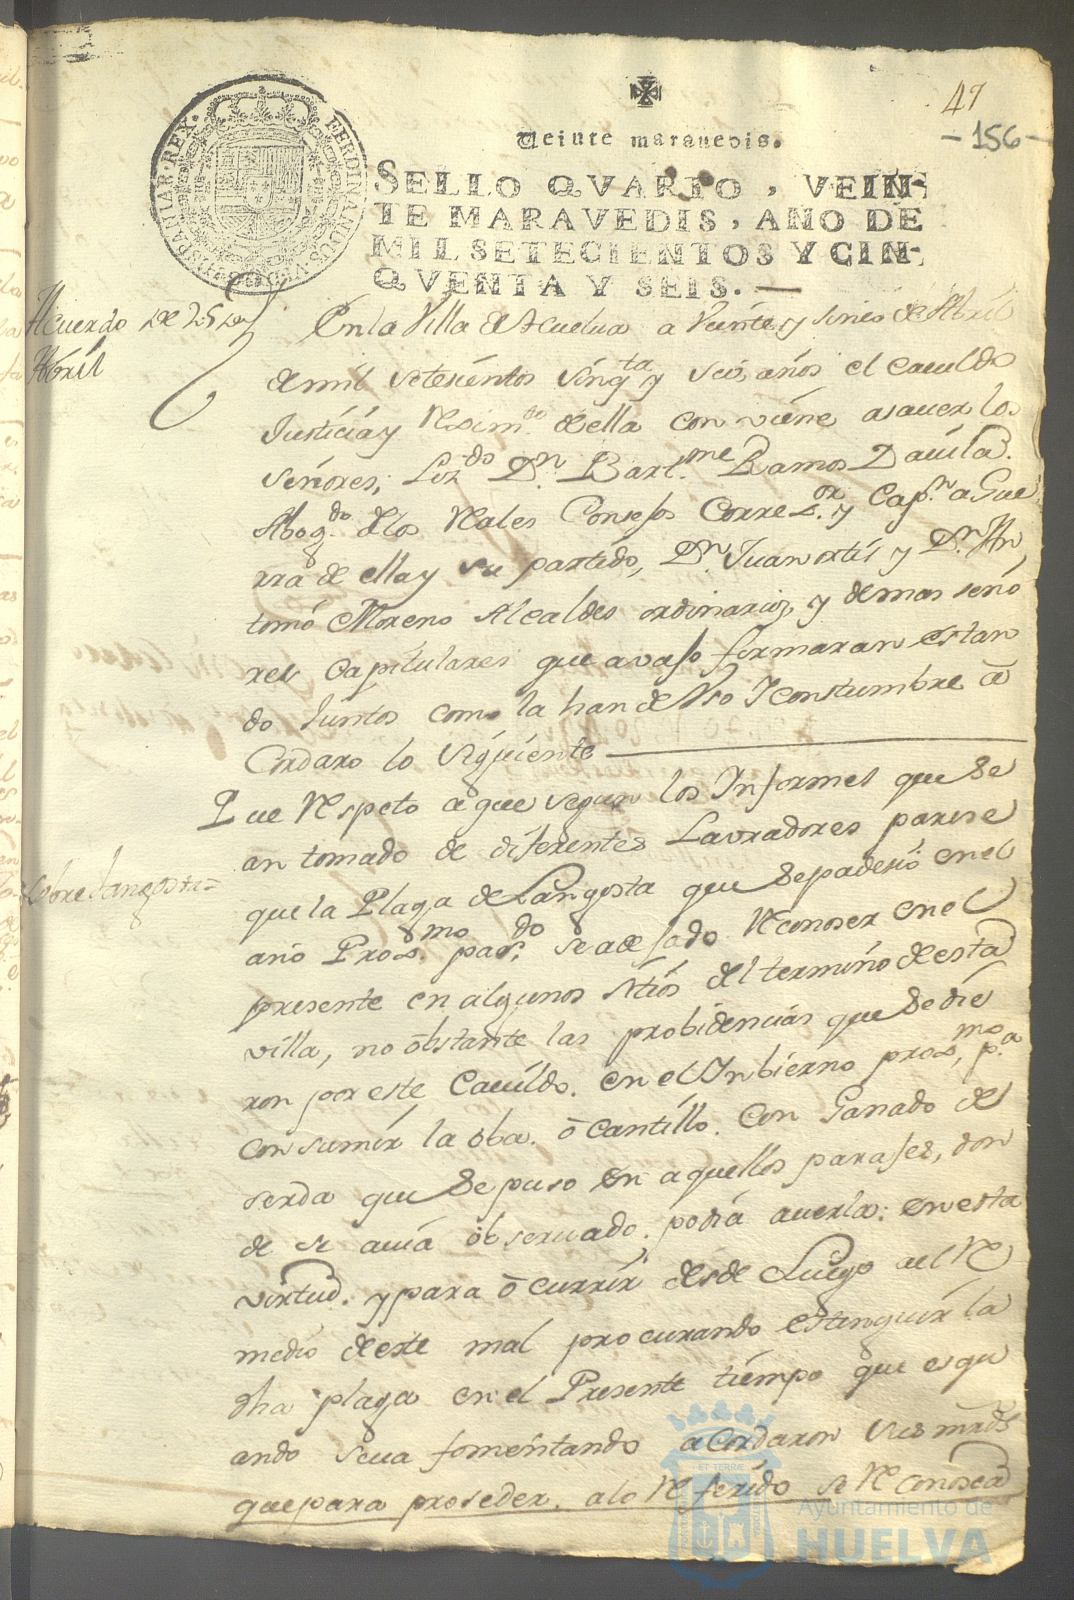 47
-156-
Veinte maravedis.
SELLO QVARTO, VEIN-
TE MARAVEDIS, AÑO DE
MIL SETECIENTOS Y CIN-
QVENTA Y SEIS.
FERDINANDUS VI D G HISPANIAR REX
Acuerdo de 25 de
Abril
En la Villa de Huelva a Veinte y sinco de Abril
de mil setesientos sinqta y seis, años el cavildo
Justicia y Reximto della con viene asauer los
señores, Lizdo Dn. Bartme Ramos Davila.
Abogdo de los Reales Consejos Correxor y Capn a Gue
rra de ella y su partido, Dn Juan ortis y Dn An
tonio Moreno Alcaldes ordinarios, y demas seño
res Capitulares que avajo formaran estan
do Juntos como la han de Uso I constumbre a
Cordaro lo siguiente
Que Respeto a que segun los Informes que se
an tomado de diferentes Lavradores parese
sobre langosta=
que la Plaga de Langosta que se padesio en el
año Proxmo pasdo se a dejado Reconoser en el
presente en algunos sitios del termino de esta
villa, no obstante las probidencias que se die
ron por este Cavildo. en el Inbierno proxmo, pa
consumir la oba. o cantillo. Con Ganado de
serda que se puso en aquellos parajes, don
de se auia observado. podia averla: en esta
virtud. y para ocurrir desde Luego al Re
medio deste mal procurando estinguir la
dha plaga en el Presente tiempo que es qu
ando seva fomentando acordaron sus mrds
que para proseder. a lo Referido se Reconosca
Ayuntamiento de
HUELVA